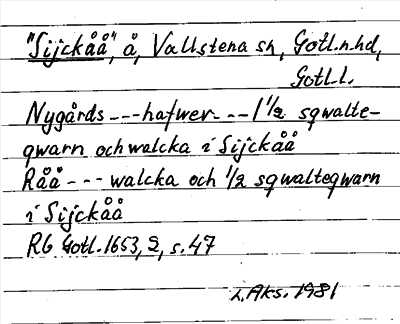 "Sijckåå", å, Vallstena sn, Gotl.n.hd,
Gotl.l.
Nygårds --- hafwer --- 1 1/2 sqwalte-
qwarn och walcka i Sijckåå
Råå --- walcka och 1/2 sqwalteqwarn
i Sijckåå
RG Gotl. 1653, 2, s. 47
L. Aks. 1981